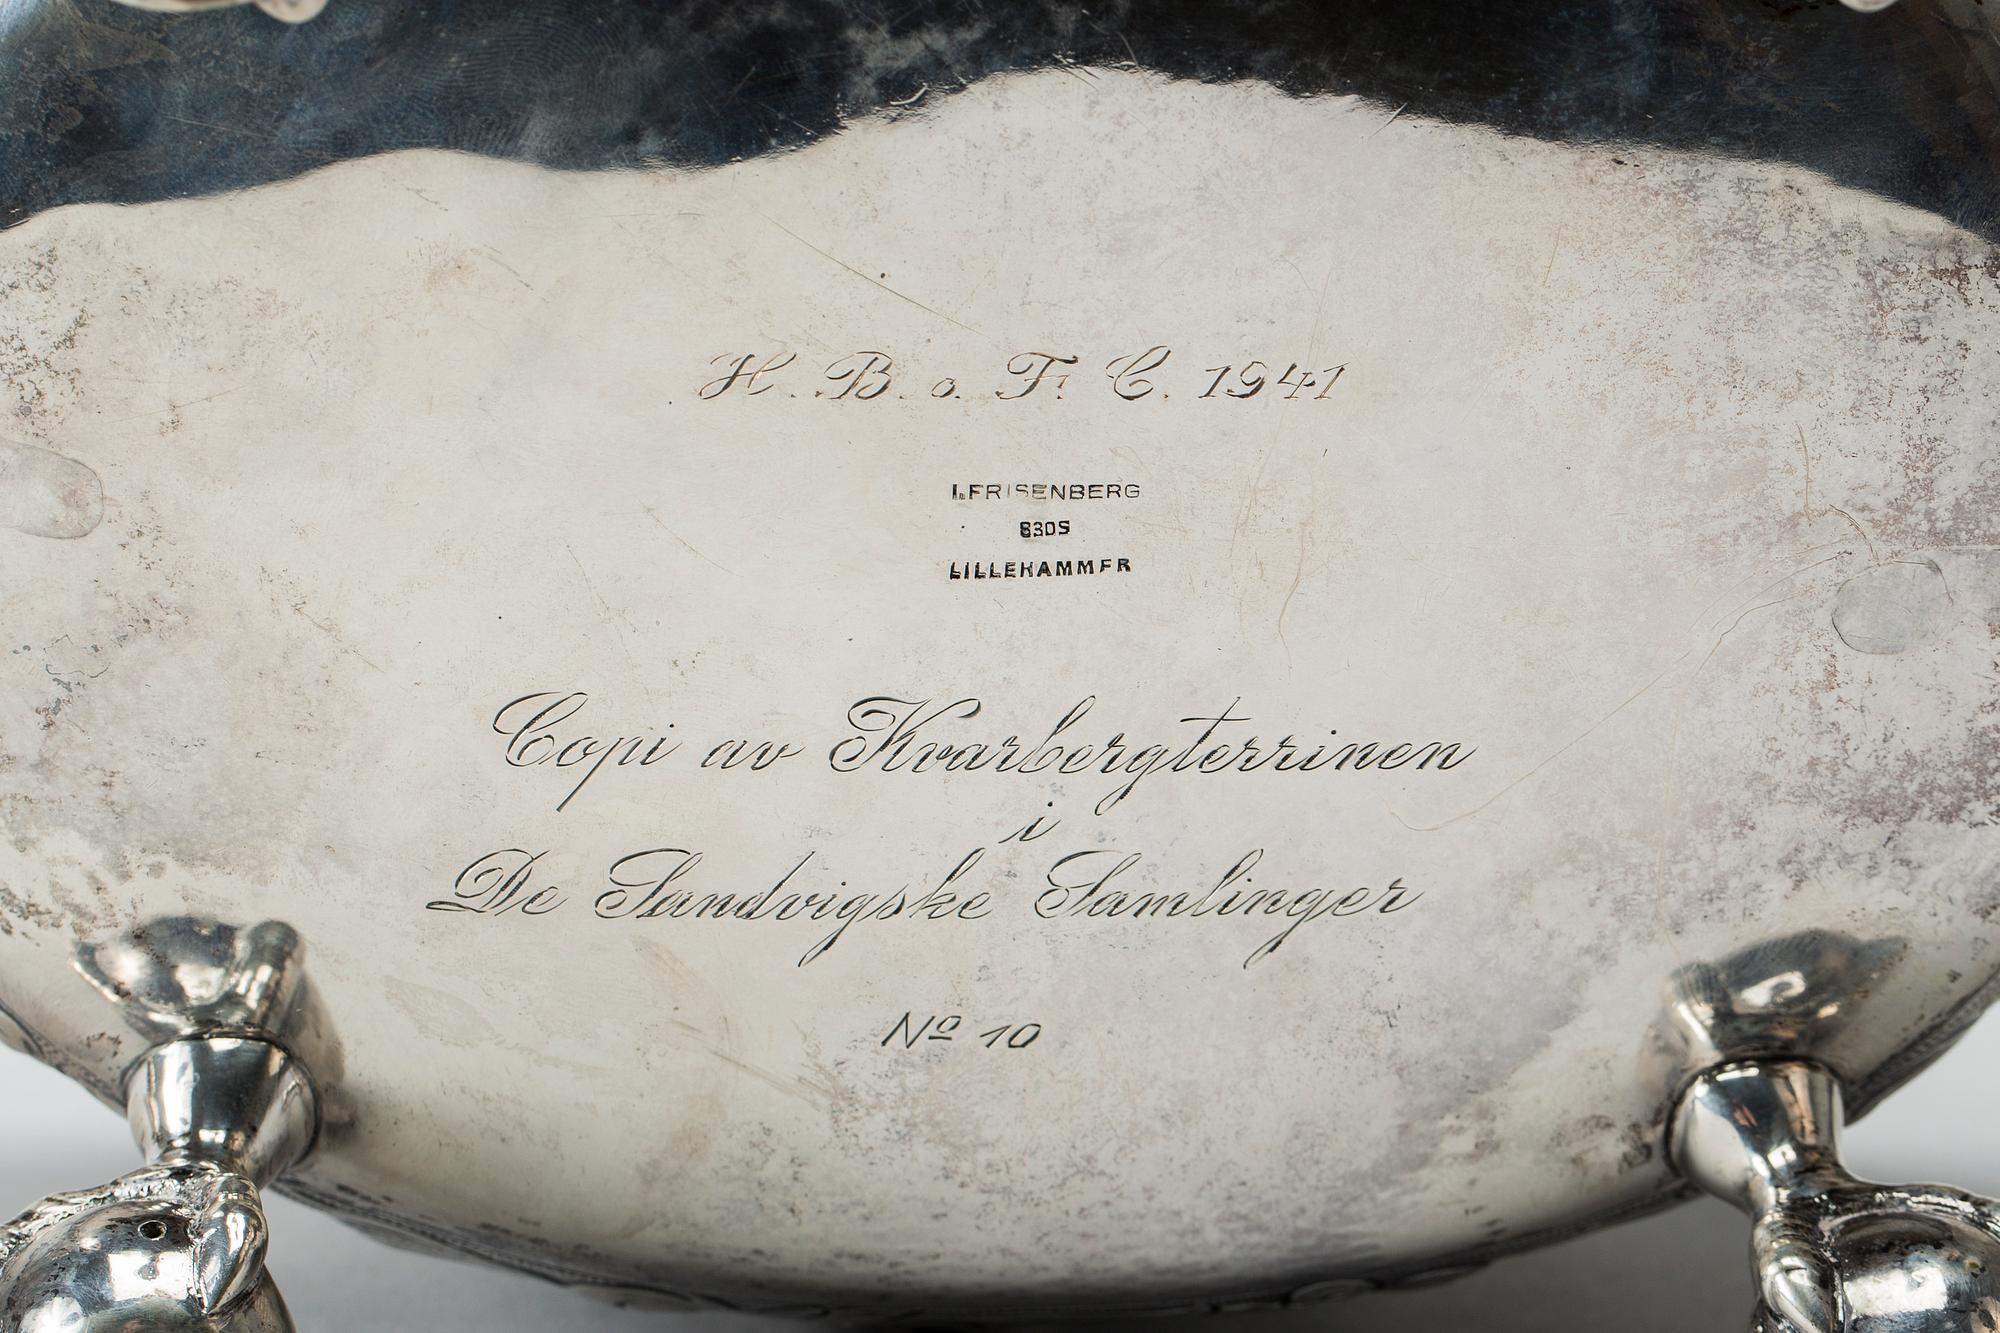 H. B. o. F. C. 1941
I.FRISENBERG
830S
LILLEHAMMER
Copi av Kvarbergterrinen
i
De Sandvigske Samlinger
Nº 10